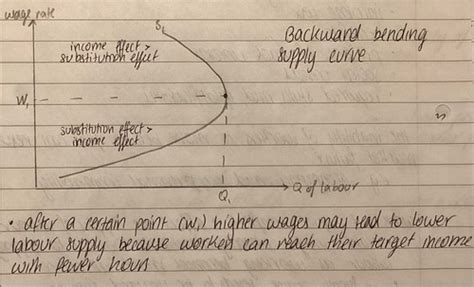 wage rate
S₁
Backward bending
supply curve
income effect >
substitution effect
W₁
substitution effect >
income effect
Q₁
Q of labour
• after a certain point (W₁) higher wages may lead to lower
labour supply because workers can reach their target income
with fewer hours